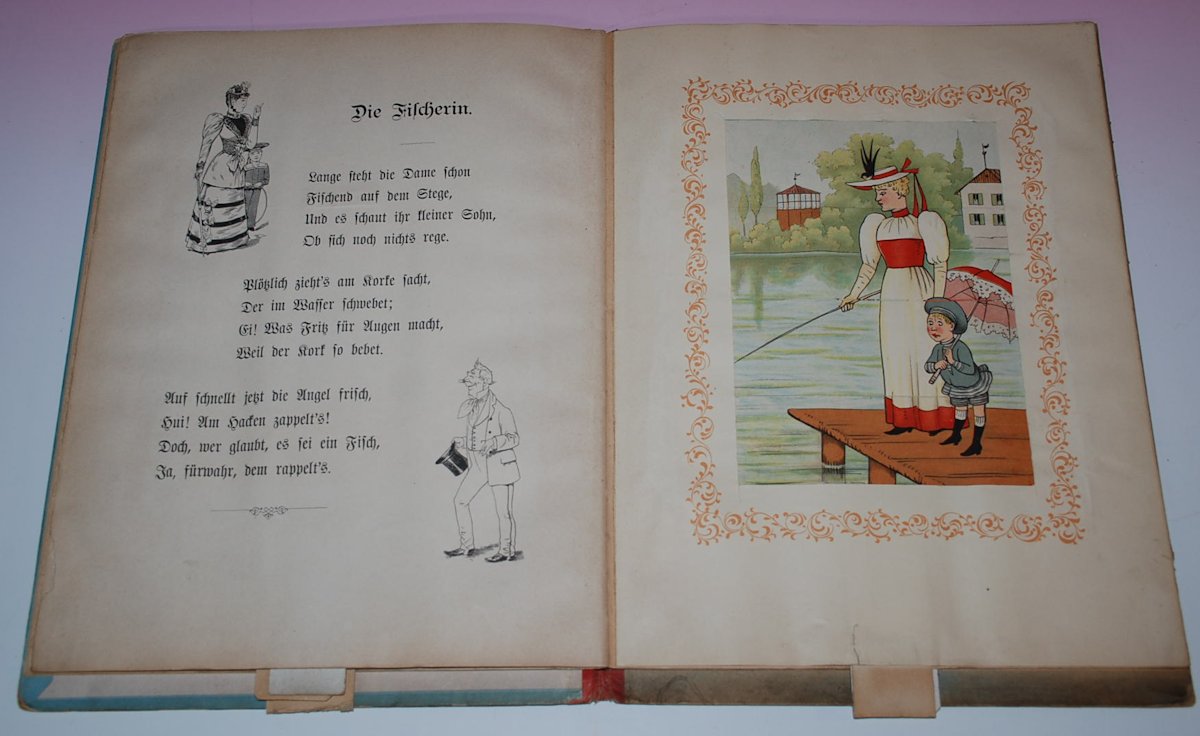 Die Fischerin.
Lange steht die Dame schon
Fischend auf dem Stege,
Und es schaut ihr kleiner Sohn,
Ob sich noch nichts rege.
Plötzlich zieht's am Korke sacht,
Der im Wasser schwebet;
Ei! Was Fritz für Augen macht,
Weil der Kork so bebet.
Auf schnellt jetzt die Angel frisch,
Hui! Am Hacken zappelt's!
Doch, wer glaubt, es sei ein Fisch,
Ja, fürwahr, dem rappelt's.